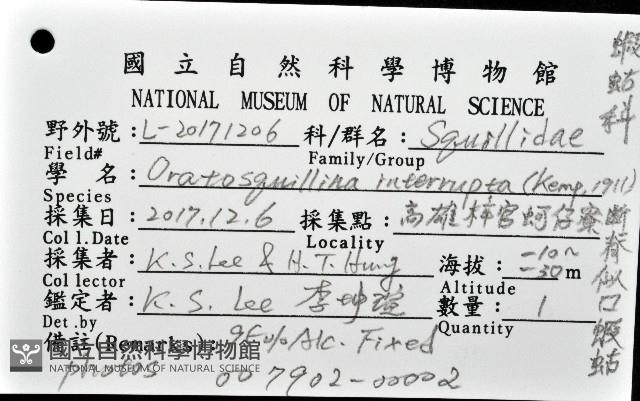 國立自然科學博物館
NATIONAL MUSEUM OF NATURAL SCIENCE
野外號: L-20171206 科/群名: Squillidae
Field# Family/Group
學名: Oratosquillina interrupta (Kemp, 1911)
Species
採集日: 2017.12.6 採集點: 高雄梓官蚵仔寮
Col l.Date Locality
採集者: K.S.Lee & H.T.Hung 海拔: -10~-30 m
Col lector Altitude
鑑定者: K.S. Lee 李坤瑄 數量: 1
Det.by Quantity
備註(Remarks): 95% Alc. Fixed
photos 007902-00002
蝦蛄科
斷脊似口蝦蛄
國立自然科學博物館
NATIONAL MUSEUM OF NATURAL SCIENCE